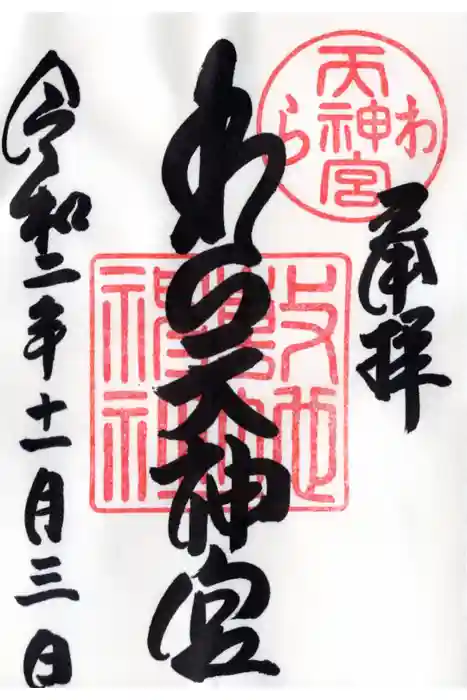 奉拝
わら
天神宮
わら天神宮
敷地
神社
令和二年十一月三日